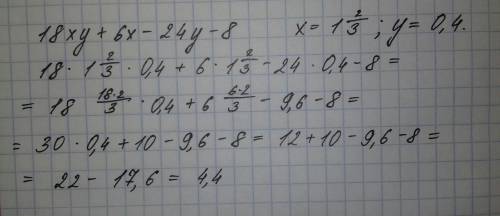 18xy + 6x - 24y - 8    x = 1 2/3 ; y = 0,4.
18 · 1 2/3 · 0,4 + 6 · 1 2/3 - 24 · 0,4 - 8 =
= 18 18·2/3 · 0,4 + 6 6·2/3 - 9,6 - 8 =
= 30 · 0,4 + 10 - 9,6 - 8 = 12 + 10 - 9,6 - 8 =
= 22 - 17,6 = 4,4